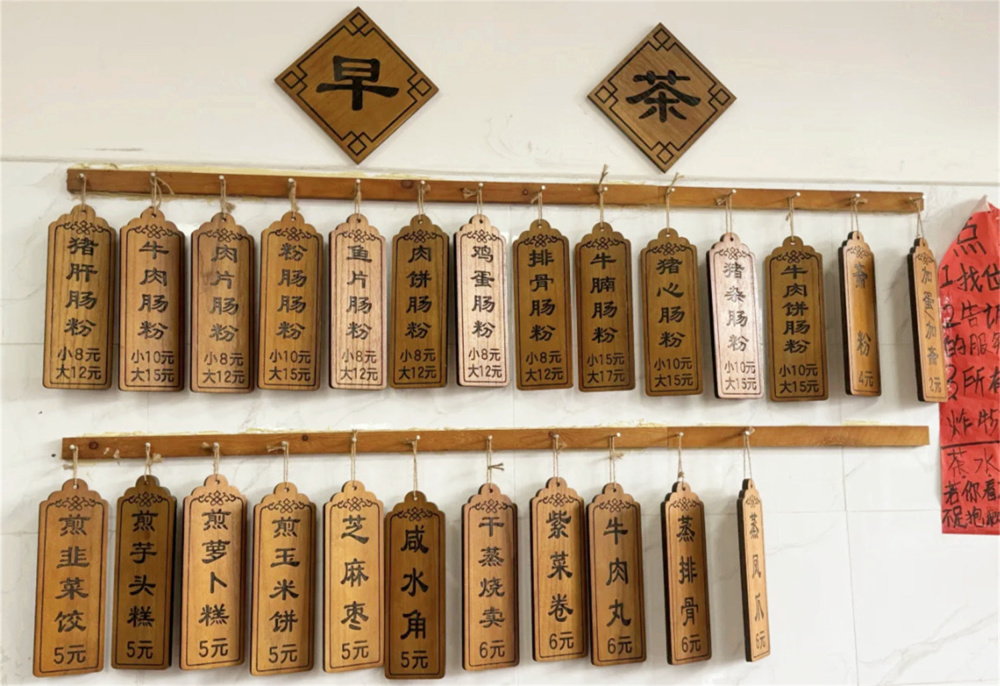 早茶
猪肝肠粉
小8元
大12元
牛肉肠粉
小10元
大15元
肉片肠粉
小8元
大12元
粉肠肠粉
小10元
大15元
鱼片肠粉
小8元
大12元
肉饼肠粉
小8元
大12元
鸡蛋肠粉
小8元
大12元
排骨肠粉
小8元
大12元
牛腩肠粉
小15元
大17元
猪心肠粉
小10元
大15元
猪杂肠粉
小10元
大15元
牛肉饼肠粉
小10元
大15元
斋粉
4元
加蛋加斋
2元
煎韭菜饺
5元
煎芋头糕
5元
煎萝卜糕
5元
煎玉米饼
5元
芝麻枣
5元
咸水角
5元
干蒸烧卖
6元
紫菜卷
6元
牛肉丸
6元
蒸排骨
6元
蒸凤爪
6元
点
1找位
2告
的服
3所有
炸物
茶水
若你看
不足抱